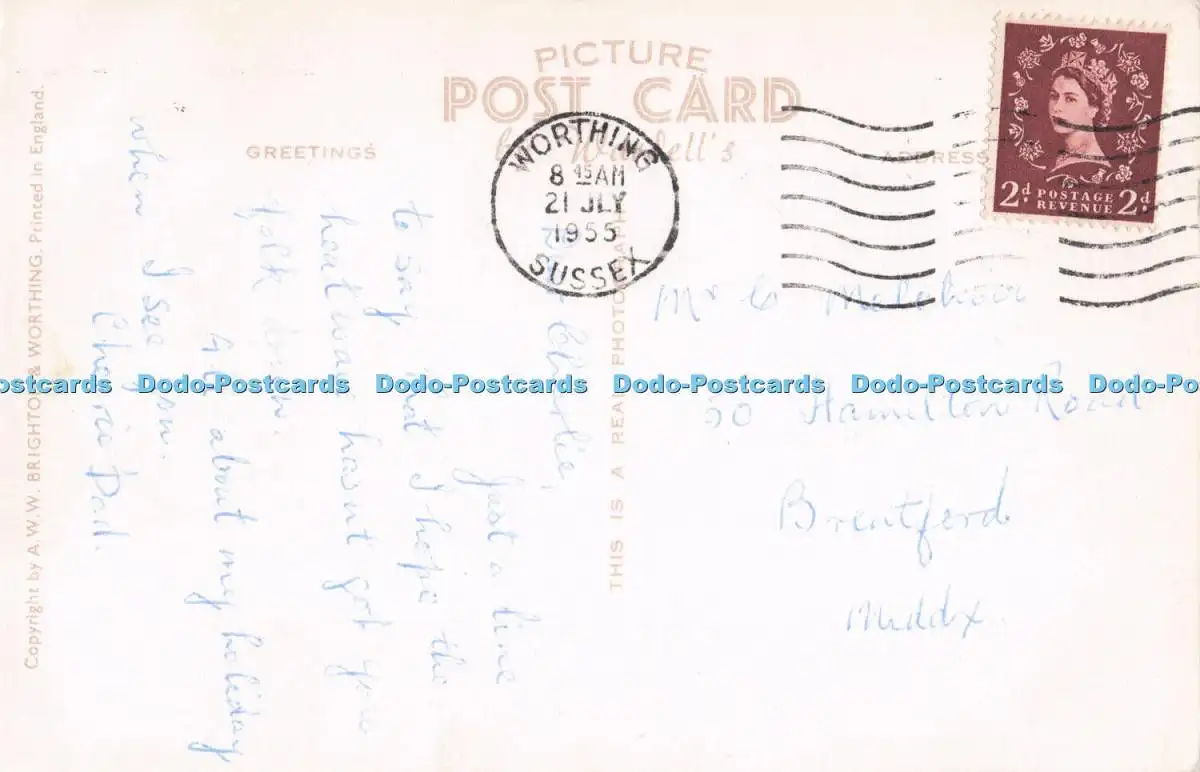 PICTURE
POST CARD
GREETINGS
ADDRESS
WORTHING
8 45 AM
21 JLY
1955
SUSSEX
2d POSTAGE REVENUE 2d
Charlie,
Just a line
to say that I hope the
heat wave hasn't got you
folk down.
about my holiday
when I see you.
Dad.
THIS IS A REAL PHOTO
Mr C
50 Hamilton Road
Brentford
Middx
Copyright by A.W.W. BRIGHTON & WORTHING. Printed in England.
Dodo-Postcards Dodo-Postcards Dodo-Postcards Dodo-Postcards Dodo-Postcards